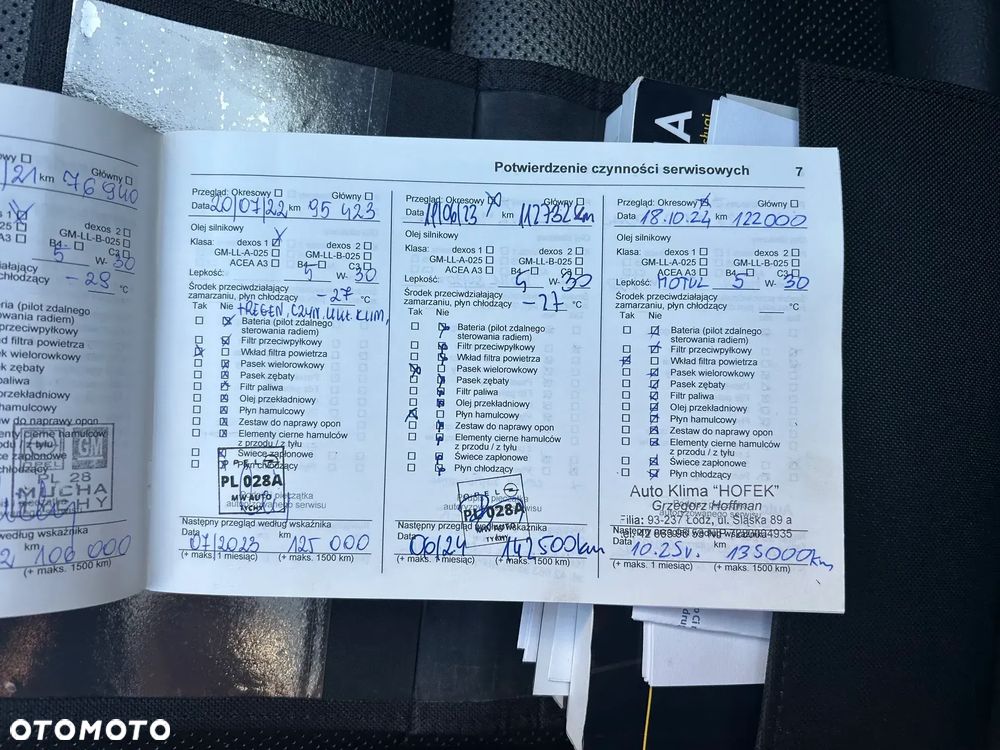 Główny
21 km 76 940
dexos 2
GM-LL-B-025
A3
B4
C3
5 W- 30
- 28 °C
PL 28
MUCHA
według wskaźnika
km
106 000
(+ maks. 1500 km)
Potwierdzenie czynności serwisowych 7
Przegląd: Okresowy Główny
Data 20/07/22 km 95 423
Olej silnikowy
Klasa: dexos 1 dexos 2
GM-LL-A-025 GM-LL-B-025
ACEA A3 B4 C3
Lepkość: 5 W- 30
Środek przeciwdziałający
zamarzaniu, płyn chłodzący - 27 °C
Tak Nie
Bateria (pilot zdalnego
sterowania radiem)
Filtr przeciwpyłkowy
Wkład filtra powietrza
Pasek wielorowkowy
Pasek zębaty
Filtr paliwa
Olej przekładniowy
Płyn hamulcowy
Zestaw do naprawy opon
Elementy cierne hamulców
z przodu / z tyłu
Świece zapłonowe
Płyn chłodzący
OPEL
PL 028A
MW AUTO
TYCHY
Następny przegląd według wskaźnika
Data km
07/2023 125 000
(+ maks. 1 miesiąc) (+ maks. 1500 km)
Przegląd: Okresowy Główny
Data km
Olej silnikowy
Klasa: dexos 1 dexos 2
GM-LL-A-025 GM-LL-B-025
ACEA A3 B4 C3
Lepkość: 5 W- 30
Środek przeciwdziałający
zamarzaniu, płyn chłodzący - 27 °C
Tak Nie
Bateria (pilot zdalnego
sterowania radiem)
Filtr przeciwpyłkowy
Wkład filtra powietrza
Pasek wielorowkowy
Pasek zębaty
Filtr paliwa
Olej przekładniowy
Płyn hamulcowy
Zestaw do naprawy opon
Elementy cierne hamulców
z przodu / z tyłu
Świece zapłonowe
Płyn chłodzący
OPEL
PL 028A
MW AUTO
TYCHY
Następny przegląd według wskaźnika
Data km
06/24 142500km
(+ maks. 1 miesiąc) (+ maks. 1500 km)
Przegląd: Okresowy Główny
Data 18.10.24 km 122000
Olej silnikowy
Klasa: dexos 1 dexos 2
GM-LL-A-025 GM-LL-B-025
ACEA A3 B4 C3
Lepkość: MOTUL 5 W- 30
Środek przeciwdziałający
zamarzaniu, płyn chłodzący °C
Tak Nie
Bateria (pilot zdalnego
sterowania radiem)
Filtr przeciwpyłkowy
Wkład filtra powietrza
Pasek wielorowkowy
Pasek zębaty
Filtr paliwa
Olej przekładniowy
Płyn hamulcowy
Zestaw do naprawy opon
Elementy cierne hamulców
z przodu / z tyłu
Świece zapłonowe
Płyn chłodzący
Auto Klima "HOFEK"
Grzegorz Hoffman
Filia: 93-237 Łódź, ul. Śląska 89 a
Data km
10.25r. 135000km
(+ maks. 1 miesiąc) (+ maks. 1500 km)
OTOMOTO